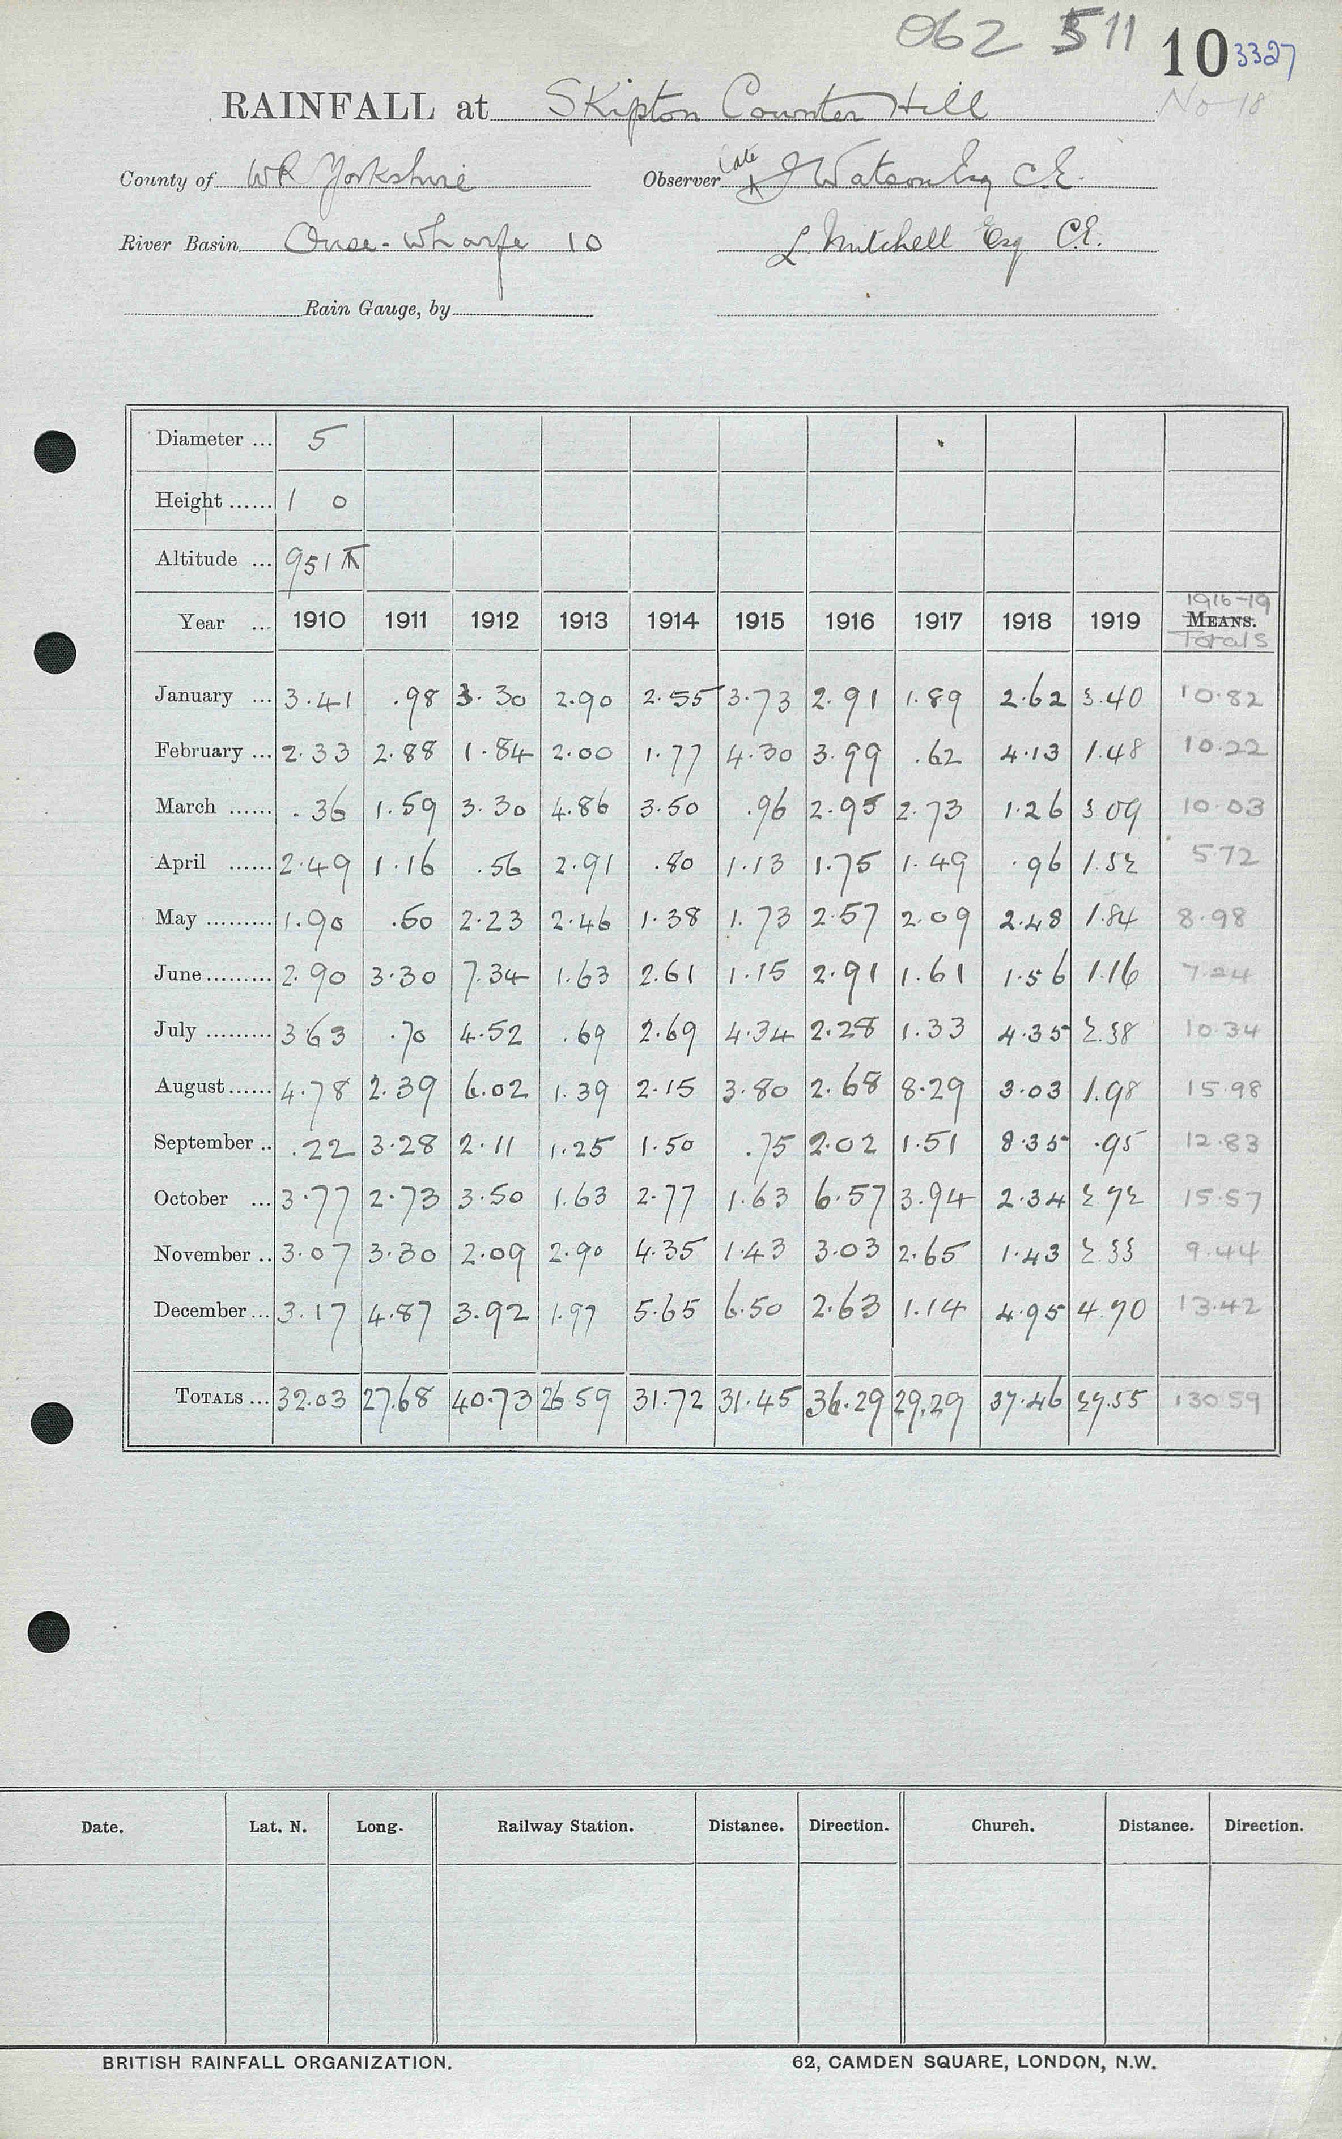 062 511
10 3327
No 18
RAINFALL at Skipton Counter Hill
County of WR Yorkshire Observer late J Watson Esq C.E.
River Basin Ouse-Wharfe 10 L. Mitchell Esq C.E.
Rain Gauge, by
Diameter ... 5
Height ...... 1 0
Altitude ... 951
1916-19
Year ... 1910 1911 1912 1913 1914 1915 1916 1917 1918 1919 MEANS.
Totals
January ... 3.41 .98 3.30 2.90 2.55 3.73 2.91 1.89 2.62 3.40 10.82
February ... 2.33 2.88 1.84 2.00 1.77 4.30 3.99 .62 4.13 1.48 10.22
March ...... .36 1.59 3.30 4.86 3.50 .96 2.95 2.73 1.26 3 09 10.03
April ...... 2.49 1.16 .56 2.91 .80 1.13 1.75 1.49 .96 1.52 5.72
May ......... 1.90 .50 2.23 2.46 1.38 1.73 2.57 2.09 2.48 1.84 8.98
June ......... 2.90 3.30 7.34 1.63 2.61 1.15 2.91 1.61 1.56 1.16 7.24
July ......... 3 63 .70 4.52 .69 2.69 4.34 2.28 1.33 4.35 2.38 10.34
August ...... 4.78 2.39 6.02 1.39 2.15 3.80 2.68 8.29 3.03 1.98 15.98
September .. .22 3.28 2.11 1.25 1.50 .75 2.02 1.51 8.35 .95 12.83
October ... 3.77 2.73 3.50 1.63 2.77 1.63 6.57 3.94 2.34 2 72 15.57
November .. 3.07 3.30 2.09 2.90 4.35 1.43 3.03 2.65 1.43 2.33 9.44
December ... 3.17 4.87 3.92 1.97 5.65 6.50 2.63 1.14 4.95 4.70 13.42
TOTALS ... 32.03 27.68 40.73 26 59 31.72 31.45 36.29 29.29 37.46 27.55 130.59
Date. Lat. N. Long. Railway Station. Distance. Direction. Church. Distance. Direction.
BRITISH RAINFALL ORGANIZATION. 62, CAMDEN SQUARE, LONDON, N.W.